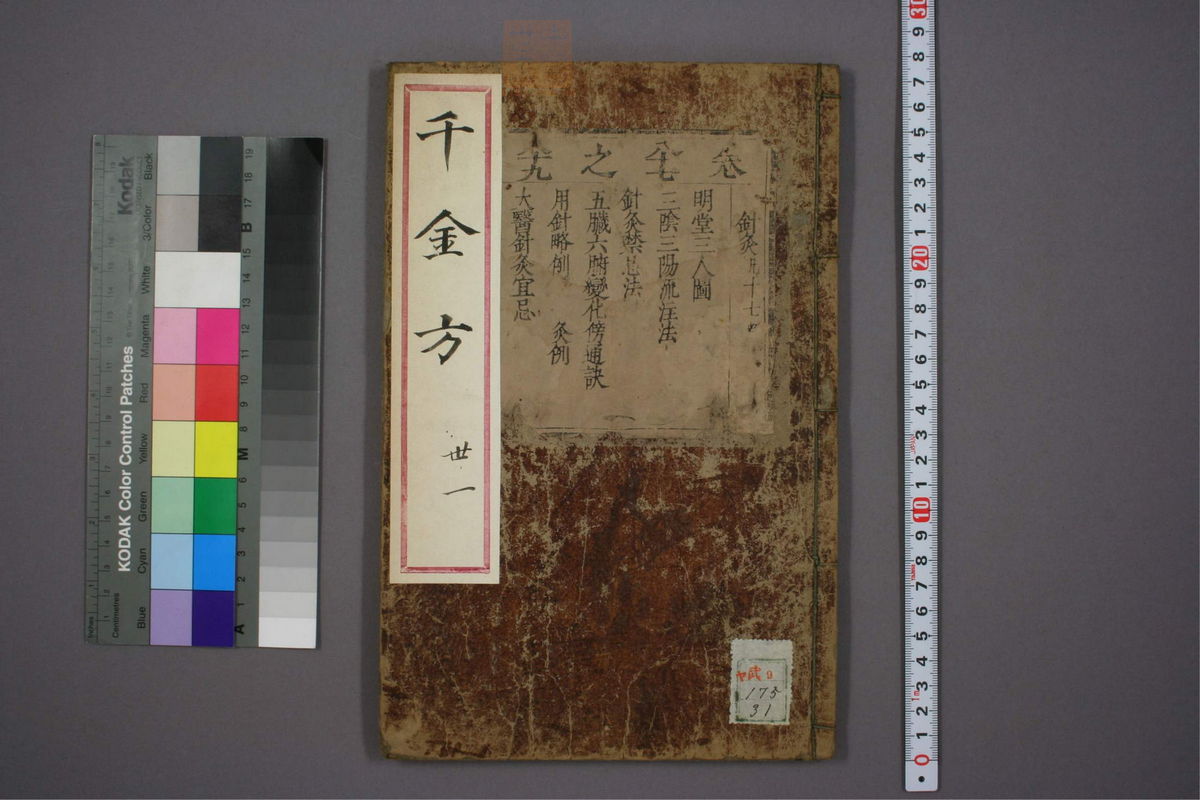 千金方
世一
卷
之
明堂三人圖
三陰三陽流注法
針灸禁忌法
五臟六腑變化傍通訣
用針略例 灸例
大醫針灸宜忌
175
31
KODAK Color Control Patches
Kodak
Inches
Centimetres
Blue
Cyan
Green
Yellow
Red
Magenta
White
3/Color
Black
A
M
B
1 2 3 4 5 6 7 8 9 10 11 12 13 14 15 17 18 19
0 1 2 3 4 5 6 7 8 9 10 1 2 3 4 5 6 7 8 9 20 1 2 3 4 5 6 7 8 9 30